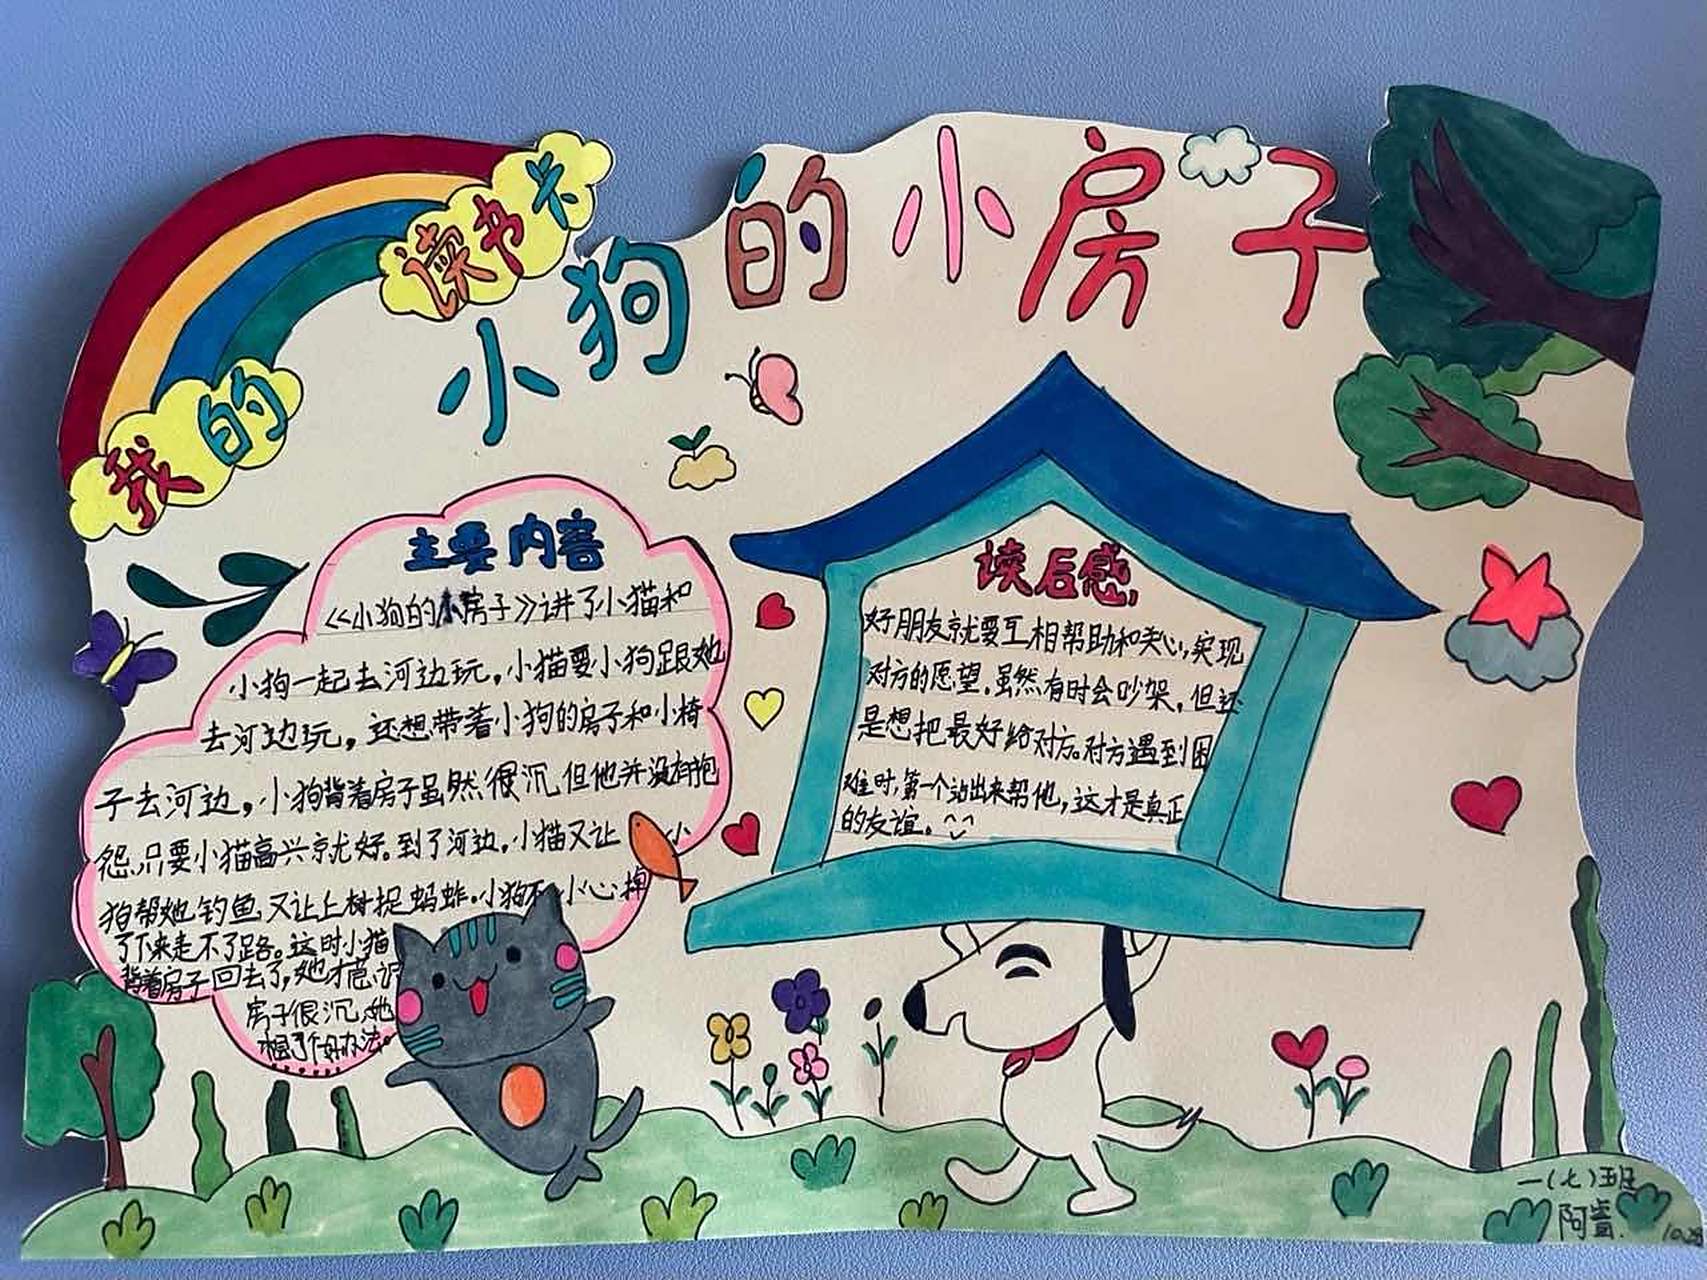 我的读书卡
小狗的小房子
主要内容
《小狗的小房子》讲了小猫和
小狗一起去河边玩,小猫要小狗跟她
去河边玩,还想带着小狗的房子和小椅
子去河边,小狗背着房子虽然很沉,但他并没有抱
怨,只要小猫高兴就好。到了河边,小猫又让小
狗帮她钓鱼,又让上树捉蚂蚱。小狗不小心掉
了下来走不了路。这时小猫
背着房子回去了,她才意识
房子很沉,她
想了个好办法。
读后感
好朋友就要互相帮助和关心,实现
对方的愿望。虽然有时会吵架,但还
是想把最好给对方。对方遇到困
难时,第一个站出来帮他,这才是真正
的友谊。
一(七)班
阿睿